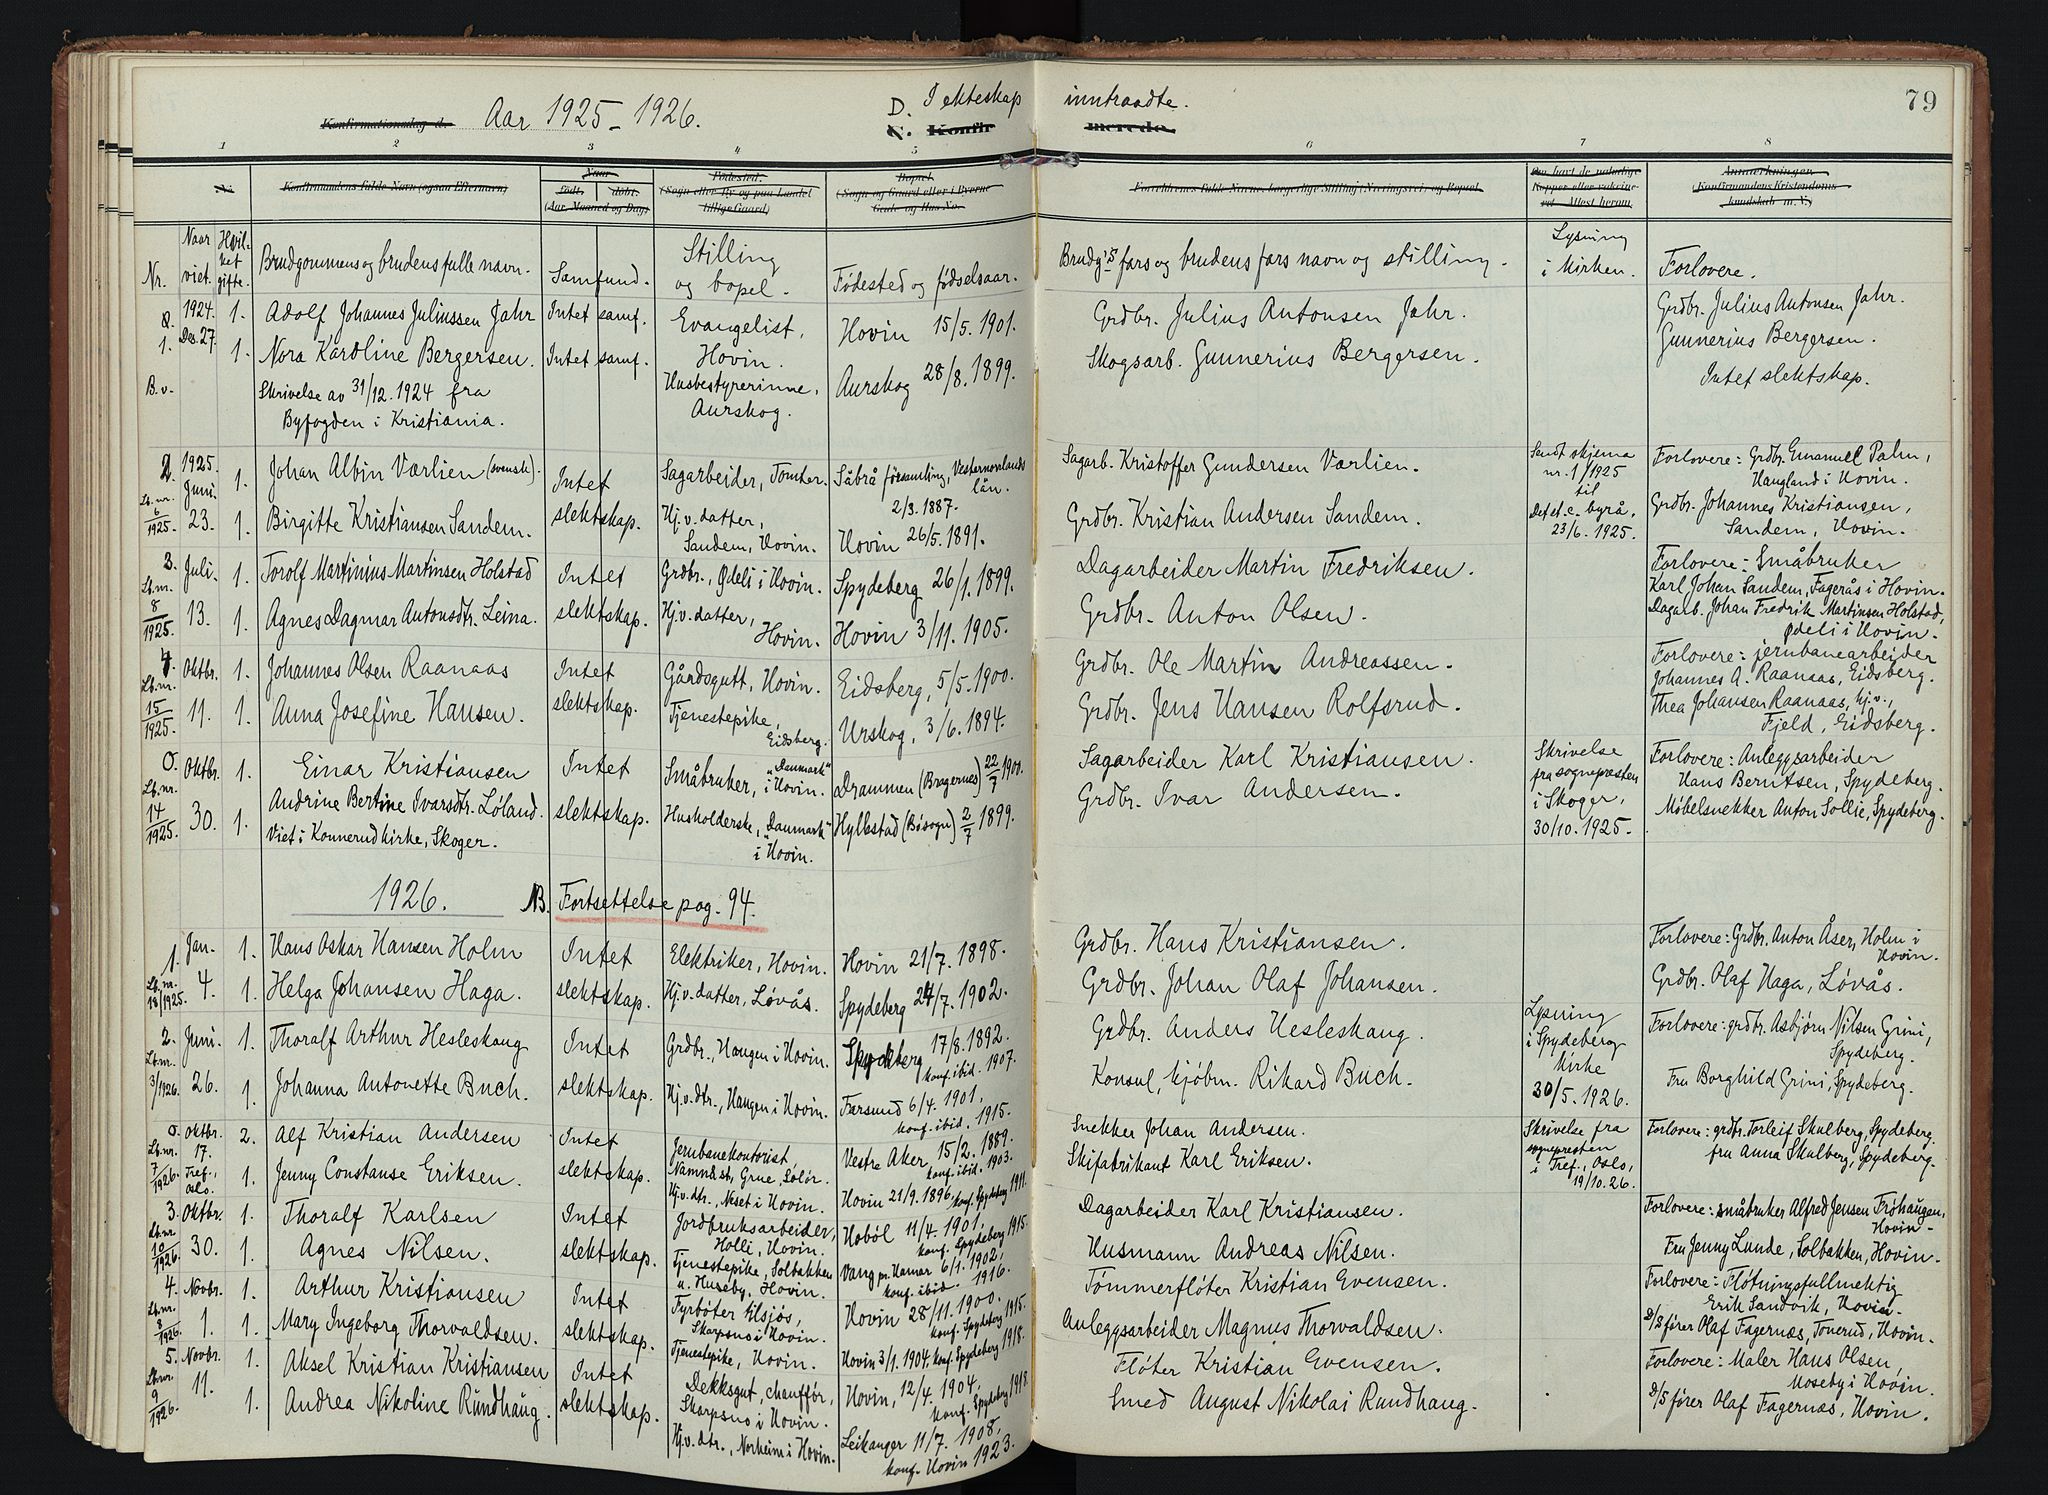 Konfirmationsdag d. Aar 1925-1926.
D. I ekteskap inntraadte.
C. Konfirmerede.
79
1 2 3 4 5 6 7 8
No
Konfirmandens fulde Navn (ogsaa Efternavn)
Naar
født. døbt.
(Aar, Maaned og Dag)
Fødested.
(Sogn eller By og paa Landet
tillige Gaard)
Bopæl
(Sogn og Gaard eller i Byerne
Gade og Hus No.
Forældrenes fulde Navne, borgerlige Stilling (Næringsvei) og Bopæl
Om havt de naturlige
Kopper eller vaksine-
ret. Attest herom.
Anmerkninger
(Konfirmandens Kristendoms-
kundskab m. V.)
Nr.
Naar
viet.
Hvil-
ket
gifte.
Brudgommens og brudens fulle navn.
Samfund.
Stilling
og bopel.
Fødested og fødselsaar.
Brudg's fars og brudens fars navn og stilling.
Lysning
i kirken.
Forlovere.
1.
B.v.
1924.
Des. 27.
1.
1.
Adolf Johannes Juliussen Jahr
Nora Karoline Bergersen.
Skrivelse av 31/12. 1924 fra
Byfogden i Kristiania.
Intet samf.
Intet samf.
Evangelist,
Hovin.
Husbestyrerinne,
Aurskog.
Hovin 15/5. 1901.
Aurskog 28/8. 1899.
Grdbr. Julius Antonsen Jahr.
Skogsarb. Gunnerius Bergersen.
Grdbr. Julius Antonsen Jahr.
Gunnerius Bergersen.
Intet slektskap.
2.
Lb.nr.
6
1925.
1925.
Juni.
23.
1.
1.
Johan Albin Værlien (svensk).
Birgitte Kristiansen Sandem.
Intet
slektskap.
Sagarbeider, Tomter.
Hj.v. datter,
Sandem, Hovin.
Säbrå församling, Vesternorrlands
län.
2/3. 1887.
Hovin 26/5. 1891.
Sagarb. Kristoffer Gundersen Værlien.
Grdbr. Kristian Andersen Sandem.
Sendt skjema
nr. 1/1925
til
Det st. c. byrå.
23/6. 1925.
Forlovere: Grdbr. Emanuel Palm,
Haugland i Hovin.
Grdbr. Johannes Kristiansen,
Sandem, Hovin.
3.
Lb.nr.
8
1925.
Juli.
13.
1.
1.
Torolf Martinius Martinsen Holstad
Agnes Dagmar Antonsdtr. Leina.
Intet
slektskap.
Grdbr., Ødeli i Hovin.
Hj.v. datter,
Hovin.
Spydeberg 26/1. 1899.
Hovin 3/11. 1905.
Dagarbeider Martin Fredriksen.
Grdbr. Anton Olsen.
Forlovere: Småbruker
Karl Johan Sandem, Fagerås i Hovin.
Dagarb. Johan Fredrik Martinsen Holstad,
Ødeli i Hovin.
4.
Lb.nr.
15
1925.
Oktbr.
11.
1.
1.
Johannes Olsen Raanaas
Anna Josefine Hansen.
Intet
slektskap.
Gårdsgutt, Hovin.
Tjenestepike,
Eidsberg.
Eidsberg, 5/5. 1900.
Urskog, 3/6. 1894.
Grdbr. Ole Martin Andreassen.
Grdbr. Jens Hansen Rolfsrud.
Forlovere: jernbanearbeider
Johannes A. Raanaas, Eidsberg.
Thea Johansen Raanaas, hj.v.,
Fjeld, Eidsberg.
0.
Lb.nr.
14
1925.
Oktbr.
30.
1.
1.
Einar Kristiansen
Andrine Bertine Ivarsdtr. Løland.
Viet i Konnerud kirke, Skoger.
Intet
slektskap.
Småbruker, "Danmark"
i Hovin.
Husholderske, "Danmark"
i Hovin.
Drammen (Bragernes) 22/7 1900.
Hylestad (Bøsogn) 2/7 1899.
Sagarbeider Karl Kristiansen.
Grdbr. Ivar Andersen.
Skrivelse
fra sognepresten
i Skoger,
30/10. 1925.
Forlovere: Anleggsarbeider
Hans Berntsen, Spydeberg.
Møbelsnekker Anton Sollie, Spydeberg.
1926. NB. Fortsettelse pag. 94.
1.
Lb.nr.
18/1925.
Jan.
4.
1.
1.
Hans Oskar Hansen Holm
Helga Johansen Haga.
Intet
slektskap.
Elektriker, Hovin.
Hj.v. datter, Løvås.
Hovin 21/7. 1898.
Spydeberg 24/7. 1902.
Grdbr. Hans Kristiansen.
Grdbr. Johan Olaf Johansen.
Forlovere: Grdbr. Anton Åser, Holm i
Hovin.
Grdbr. Olaf Haga, Løvås.
2.
Lb.nr.
3/1926.
Juni.
26.
1.
1.
Thoralf Arthur Hesleskaug
Johanna Antonette Buch.
Intet
slektskap.
Grdbr., Haugen i Hovin.
Hj.v. dtr., Haugen i Hovin.
Spydeberg 17/8. 1892.
konf. ibid. 1907.
Farsund 6/4. 1901,
konf. ibid. 1915.
Grdbr. Anders Hesleskaug.
Konsul, kjøbm. Rikard Buch.
Lysning
i Spydeberg
kirke
30/5. 1926.
Forlovere: grdbr. Asbjørn Nilsen Grini,
Spydeberg.
Fru Borghild Grini, Spydeberg.
0.
Lb.nr.
7
1926.
Oktbr.
17.
Tref.,
Oslo.
2.
1.
Alf Kristian Andersen
Jenny Constanse Eriksen.
Intet
slektskap.
Jernbanekontorist,
Namnå st., Grue, Solør.
Hj.v. dtr., Neset i Hovin.
Vestre Aker 15/2. 1889.
konf. ibid. 1903.
Hovin 21/9. 1896, konf. Spydeberg 1911.
Snekker Johan Andersen.
Skifabrikant Karl Eriksen.
Skrivelse fra
sognepresten
i Tref., Oslo,
19/10. 26.
Forlovere: grdbr. Torleif Skulberg, Spydeberg.
fru Anna Skulberg, Spydeberg.
3.
Lb.nr.
10
1926.
Oktbr.
30.
1.
1.
Thoralf Karlsen
Agnes Nilsen.
Intet
slektskap.
Jordbruksarbeider,
Holli, Hovin.
Tjenestepike, Solbakken
u. Huseby, Hovin.
Hobøl 11/4. 1901,
konf. Spydeberg 1915.
Vang pr. Hamar 6/1. 1902,
konf. ibid. 1916.
Dagarbeider Karl Kristiansen.
Husmann Andreas Nilsen.
Forlovere: småbruker Alfred Jensen Frøhaugen,
Hovin.
Fru Jenny Lunde, Solbakken, Hovin.
4.
Lb.nr.
8
1926.
Novbr.
1.
1.
1.
Arthur Kristiansen
Mary Ingeborg Thorvaldsen.
Intet
slektskap.
Fyrbøter tilsjøs,
Skarpsno i Hovin.
Tjenestepike, Hovin.
Hovin 28/11. 1900.
konf. Spydeberg 1915.
Hovin, 3/1. 1904. konf. Spydeberg 1918.
Tømmerfløter Kristian Evensen.
Anleggsarbeider Magnus Thorvaldsen.
Forlovere: Fløtningsfullmektig
Erik Sandvik, Hovin.
D/S fører Olaf Fagernæs, Tonerud, Hovin.
5.
Lb.nr.
9
1926.
Novbr.
11.
1.
1.
Aksel Kristian Kristiansen
Andrea Nikoline Rundhaug.
Intet
slektskap.
Dekksgut, chauffør,
Skarpsno i Hovin.
Hj.v. dtr., Norheim i Hovin.
Hovin, 12/4. 1904,
konf. Spydeberg 1918.
Leikanger 11/7. 1908,
konf. Hovin 1923.
Fløter Kristian Evensen.
Smed August Nikolai Rundhaug.
Forlovere: Maler Hans Olsen,
Moseby i Hovin.
D/S fører Olaf Fagernæs, Hovin.